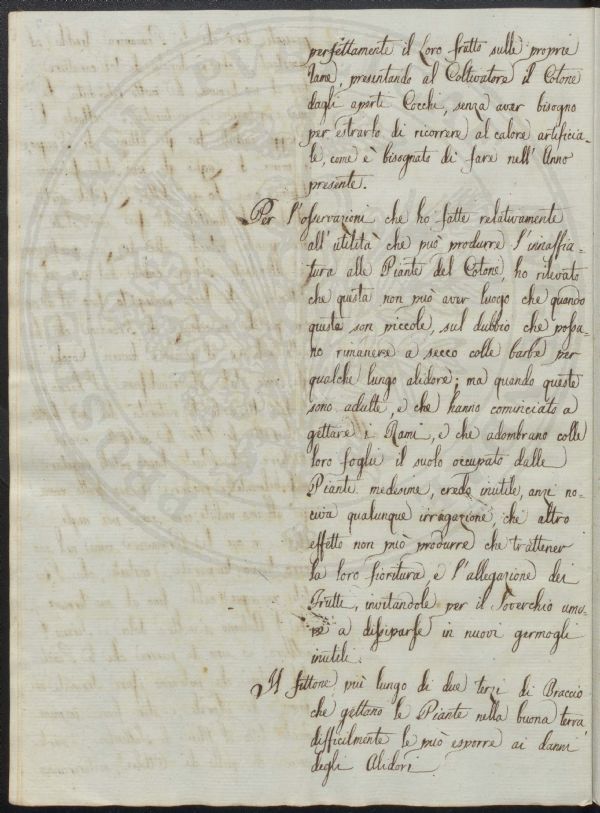 perfettamente il Loro frutto sulle proprie
Rame, presentando al Coltivatore il Cotone
dagli aperti Cocchi, senza aver bisogno
per estrarlo di ricorrere al calore artificia-
le, come è bisognato di fare nell' Anno
presente.
Per l'osservazioni che ho fatte relativamente
all' utilità che può produrre l'innaffia-
tura alle Piante del Cotone, ho rilevato
che questa non può aver luogo che quando
queste son piccole, sul dubbio che possa-
no rimanere a secco colle barbe per
qualche lungo alidore; ma quando queste
sono adulte, e che hanno cominciato a
gettare i Rami, e che adombrano colle
loro foglie il suolo occupato dalle
Piante medesime, credo inutile, anzi no-
civa qualunque irrigazione, che altro
effetto non può produrre che trattener
la loro fioritura, e l'allegazione dei
Frutti, invitandole per il Soverchio umo-
re a dissiparse in nuovi germogli
inutili.
Il fittone più lungo di due terzi di Braccio
che gettano le Piante nella buona terra
difficilmente le può esporre ai danni
degli Alidori.